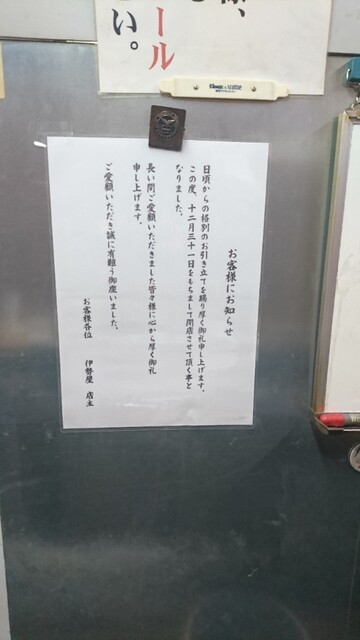 様、
ール
さい。
お客様にお知らせ
日頃からの格別のお引き立てを賜り厚く御礼申し上げます。
この度、十二月三十一日をもちまして閉店させて頂く事と
なりました。
長い間ご愛顧いただきました皆々様に心から厚く御礼
申し上げます。
ご愛顧いただき誠に有難う御座いました。
お客様各位
伊勢屋 店主